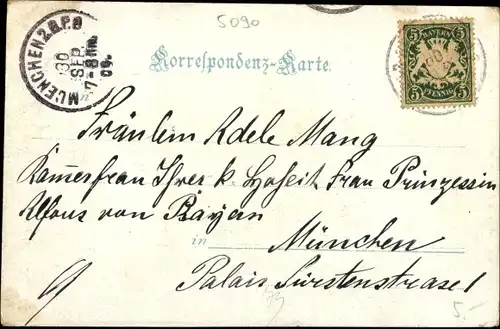 5090
MUENCHEN 2.B.P.B
30
SEP.
7-8 Nm.
00.
BAYERN
5 5
5 PFENNIG 5
Korrespondenz-Karte.
Fräulein Adele Mang
Kammerfrau Ihrer k. Hoheit Frau Prinzessin
Alfons von Bayern
in München
Palais Fürstenstrasse 1
5.-